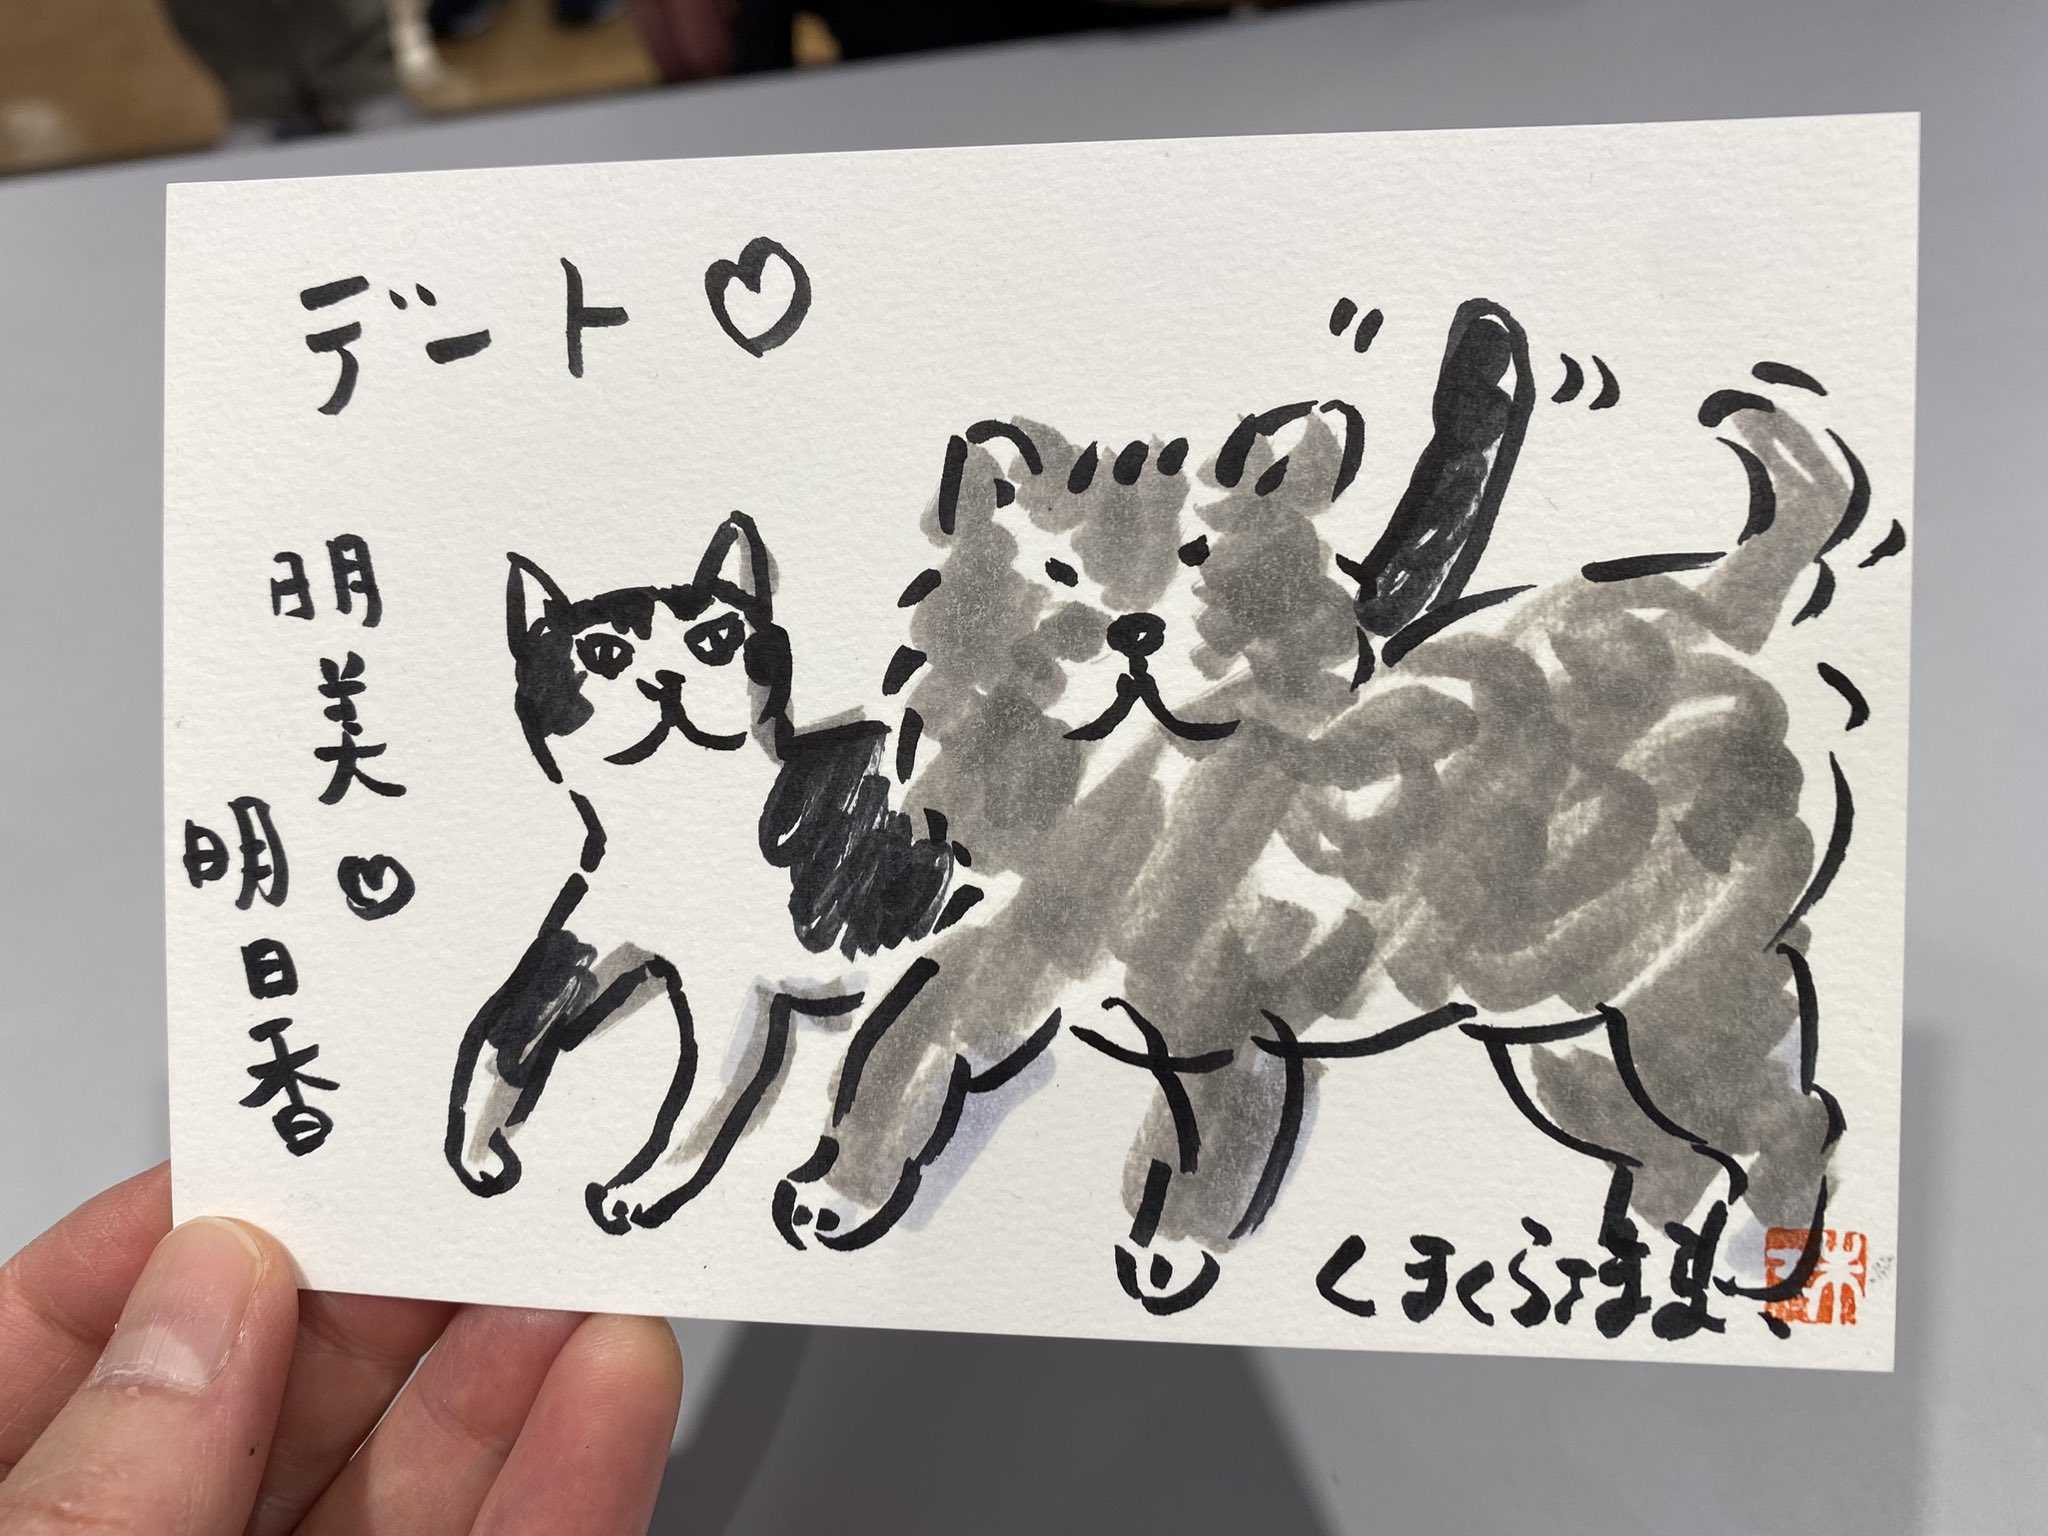 デート♡
明美♡
明日香
くまくらたまま